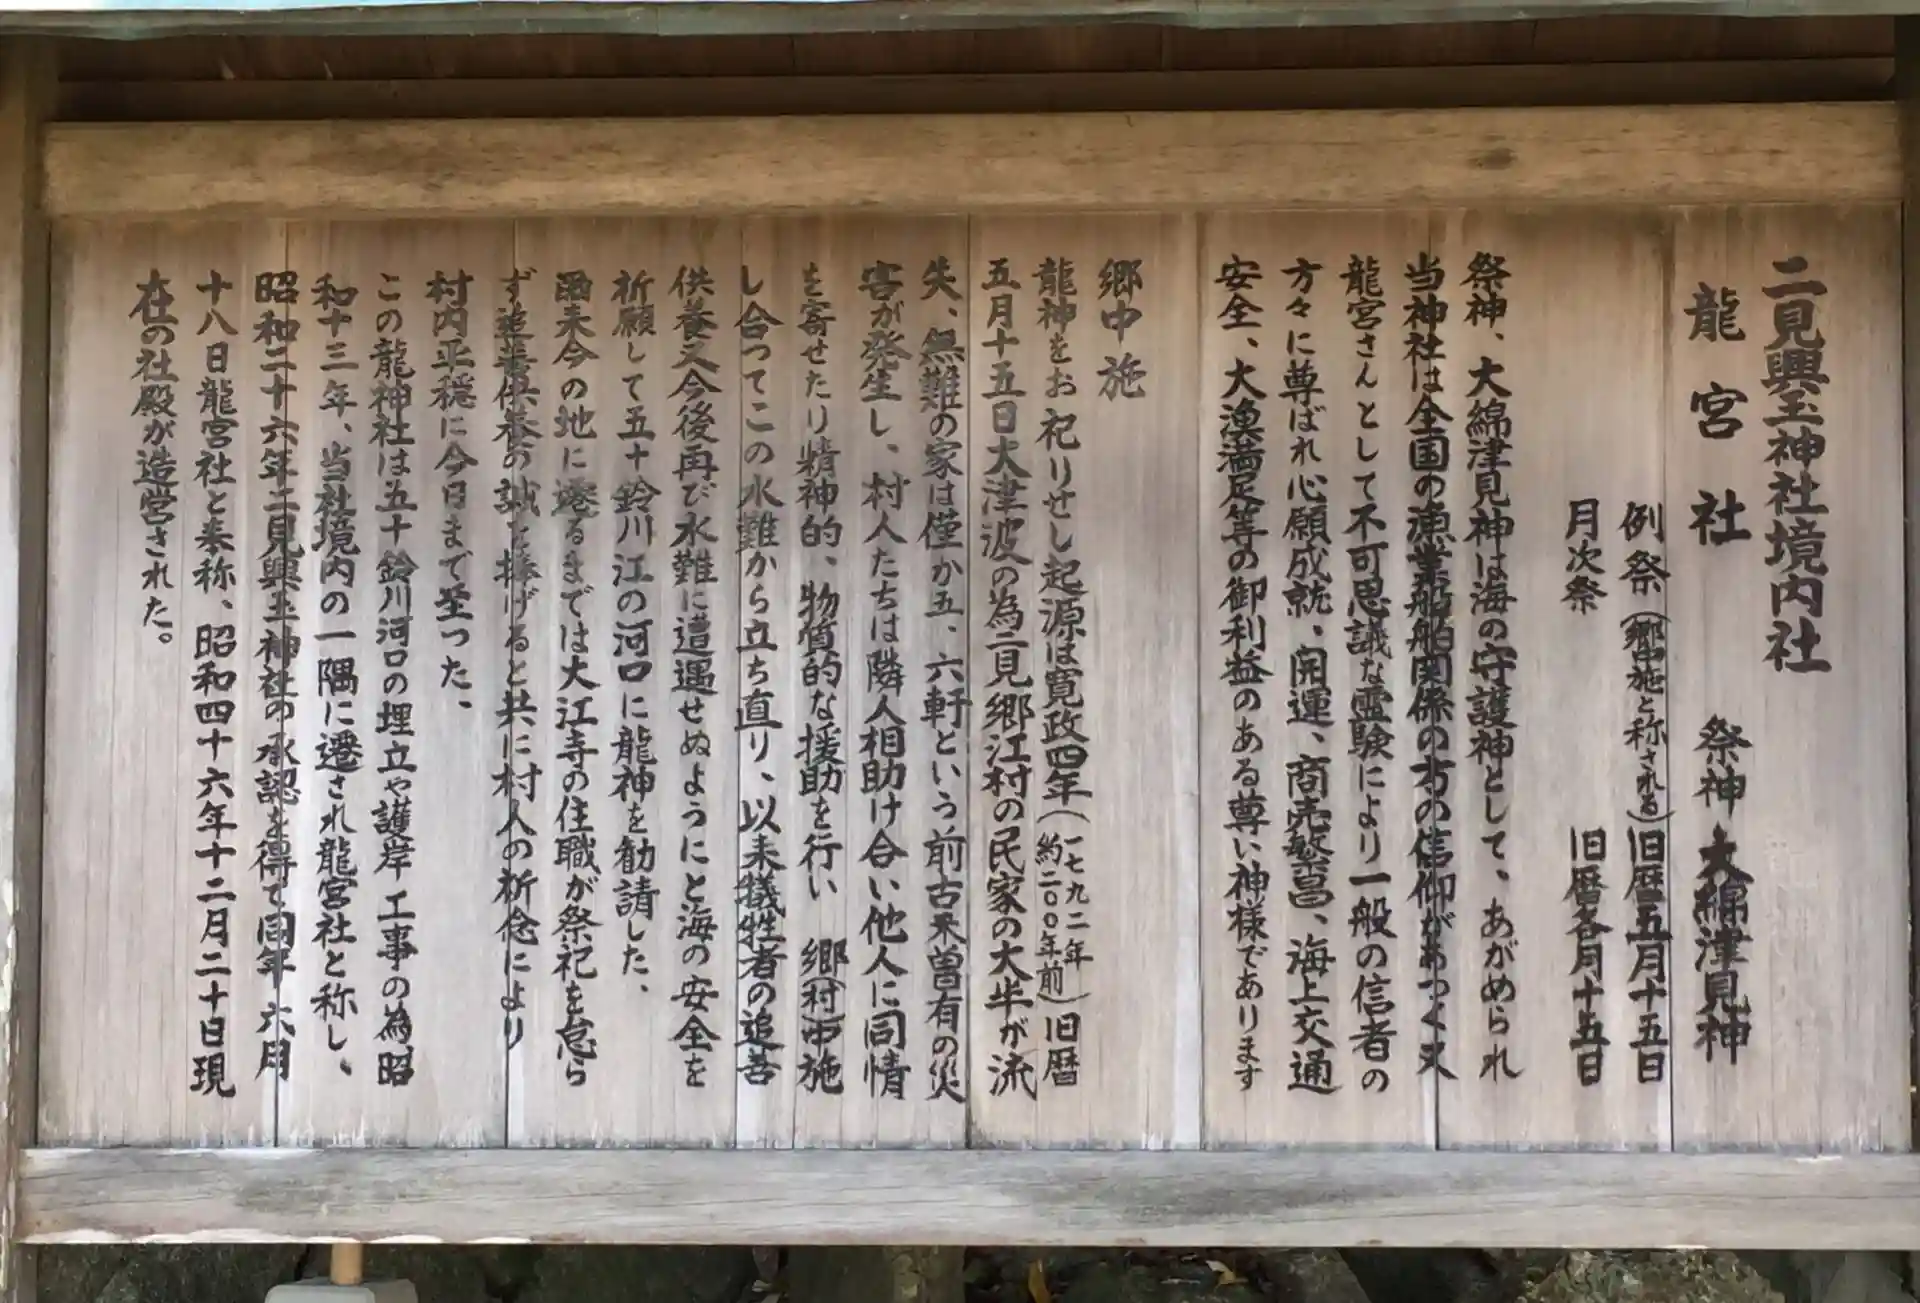 二見興玉神社境内社
龍宮社 祭神 大綿津見神
例祭(郷中施と称される)旧暦五月十五日
月次祭 旧暦各月十五日
祭神、大綿津見神は海の守護神として、あがめられ
当神社は全国の漁業船舶関係の方の信仰があつく又
龍宮さんとして不可思議な霊験により一般の信者の
方々に尊ばれ心願成就、開運、商売繁昌、海上交通
安全、大漁満足等の御利益のある尊い神様であります
郷中施
龍神をお祀りせし起源は寛政四年(一七九二年 約二〇〇年前)旧暦
五月十五日大津波の為二見郷江村の民家の大半が流
失、無難の家は僅か五、六軒という前古未曽有の災
害が発生し、村人たちは隣人相助け合い他人に同情
を寄せたり精神的、物質的な援助を行い 郷(村)中施
し合ってこの水難から立ち直り、以来犠牲者の追善
供養又今後再び水難に遭遇せぬようにと海の安全を
祈願して五十鈴川江の河口に龍神を勧請した、
爾来今の地に遷るまでは大江寺の住職が祭祀を怠ら
ず追善供養の誠を捧げると共に村人の祈念により
村内平穏に今日まで至った、
この龍神社は五十鈴川河口の埋立や護岸工事の為昭
和十三年、当社境内の一隅に遷され龍宮社と称し、
昭和二十六年二見興玉神社の承認を得て同年六月
十八日龍宮社と奉称、昭和四十六年十二月二十日現
在の社殿が造営された。